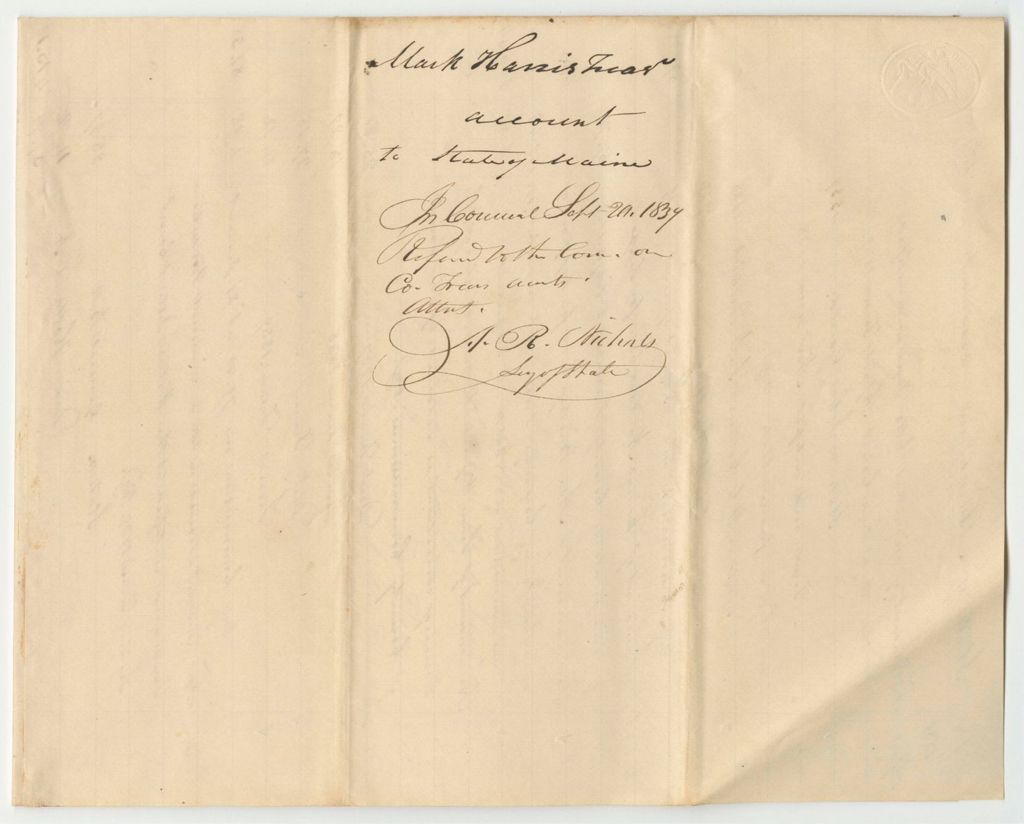 Mark Harris Treasr
account
to State of Maine
In Council Sept 20. 1839
Referred to the Com. on
Co. Treas accts.
Attest.
A. R. Nichols
Secy of State